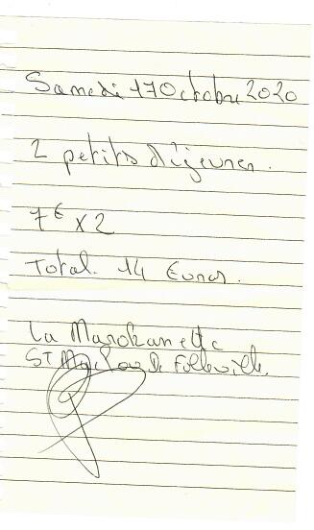 Samedi 17 Octobre 2020
2 petits déjeuner.
7€ x 2
Total. 14 Euros.
La
ST de Folleville.